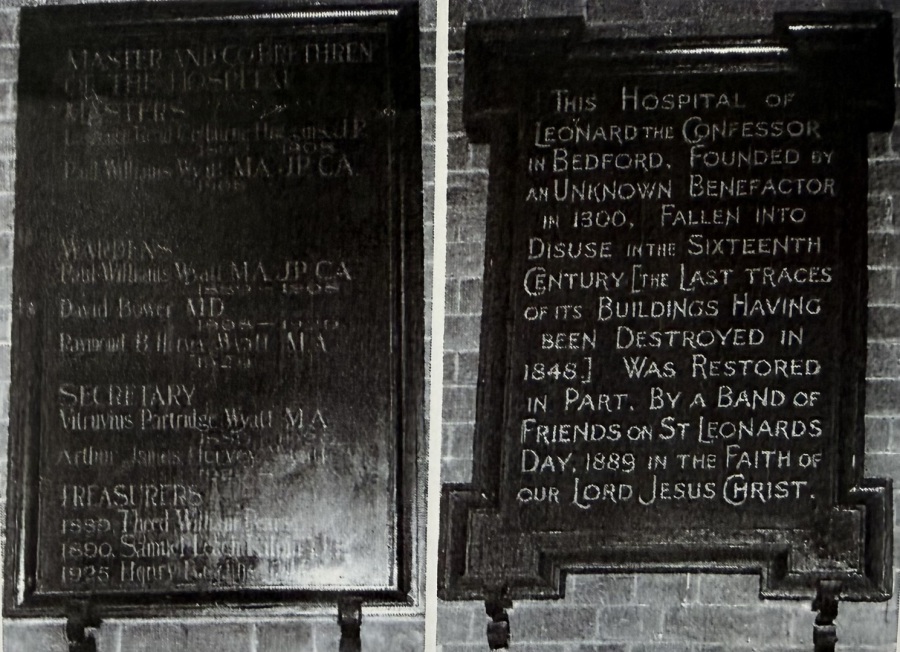 MASTER AND CO-BRETHREN
OF THE HOSPITAL
MASTERS
J.P.
1908
Paul Williams Wyatt M.A. J.P. C.A.
1908
WARDENS
Paul Williams Wyatt M.A. J.P. C.A.
1889 – 1908
David Bower M.D.
1908 –
Raymond B Hervey Wyatt M.A.
SECRETARY
Vitruvius Partridge Wyatt M.A.
Arthur James Hervey Wyatt
TREASURERS
1889 Theed William
1890 Samuel
1925 Henry
THIS HOSPITAL OF
LEONARD THE CONFESSOR
IN BEDFORD. FOUNDED BY
AN UNKNOWN BENEFACTOR
IN 1300. FALLEN INTO
DISUSE IN THE SIXTEENTH
CENTURY [THE LAST TRACES
OF ITS BUILDINGS HAVING
BEEN DESTROYED IN
1848.] WAS RESTORED
IN PART. BY A BAND OF
FRIENDS ON ST LEONARDS
DAY, 1889 IN THE FAITH OF
OUR LORD JESUS CHRIST.